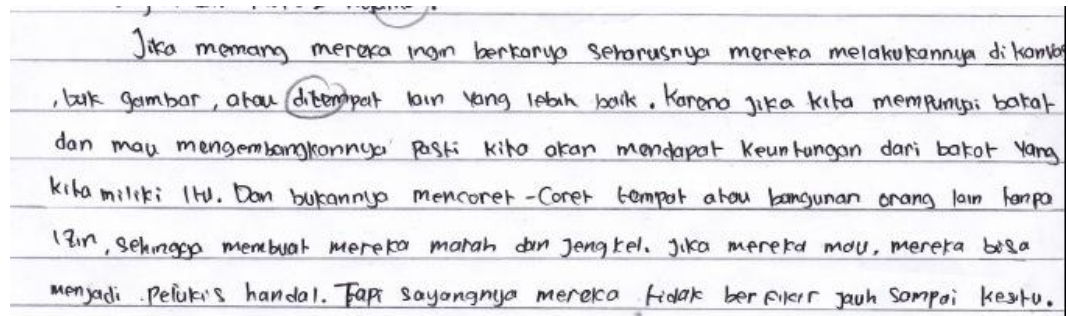 Jika memang mereka ingin berkarya seharusnya mereka melakukannya di kanvas
, buk gambar, atau ditempat lain yang lebih baik. Karena jika kita mempunyai bakat
dan mau mengembangkannya pasti kita akan mendapat keuntungan dari bakat yang
kita miliki itu. Dan bukannya mencoret-coret tempat atau bangunan orang lain tanpa
izin, sehingga membuat mereka marah dan jengkel. Jika mereka mau, mereka bisa
menjadi pelukis handal. Tapi sayangnya mereka tidak berfikir jauh sampai kesitu.